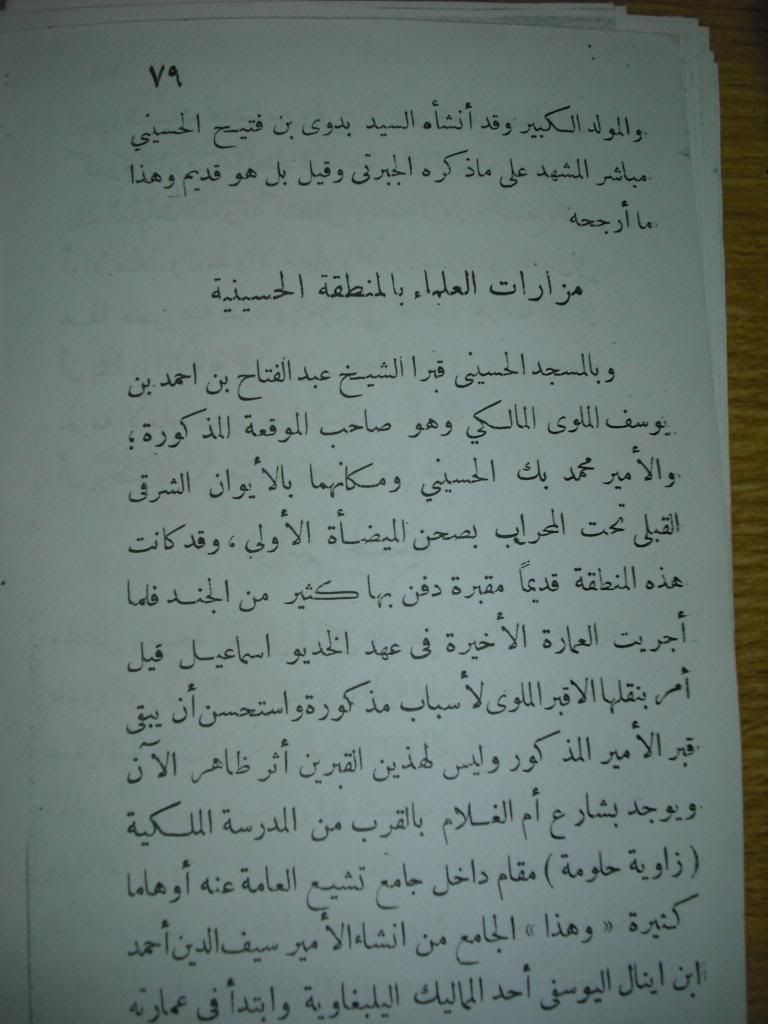 ٧٩
والمولد الكبير وقد أنشأه السيد بدوى بن فتيح الحسيني
مباشر المشهد على ماذكره الجبرتى وقيل بل هو قديم وهذا
ما أرجحه
مزارات العلماء بالمنطقة الحسينية
وبالمسجد الحسينى قبرا الشيخ عبد الفتاح بن احمد بن
يوسف الملوى المالكي وهو صاحب الموقعة المذكورة؛
والأمير محمد بك الحسيني ومكانهما بالأيوان الشرقى
القبلى تحت المحراب بصحن الميضأة الأولى، وقد كانت
هذه المنطقة قديمًا مقبرة دفن بها كثير من الجند فلما
أجريت العمارة الأخيرة فى عهد الخديو اسماعيل قيل
أمر بنقلها الاقبر الملوى لأسباب مذكورة واستحسن أن يبقى
قبر الأمير المذكور وليس لهذين القبرين أثر ظاهر الآن
ويوجد بشارع أم الغلام بالقرب من المدرسة الملكية
(زاوية حلومة) مقام داخل جامع تشيع العامة عنه أوهاما
كثيرة «وهذا» الجامع من انشاء الأمير سيف الدين أحمد
ابن اينال اليوسفى أحد المماليك اليلبغاوية وابتدأ فى عمارته